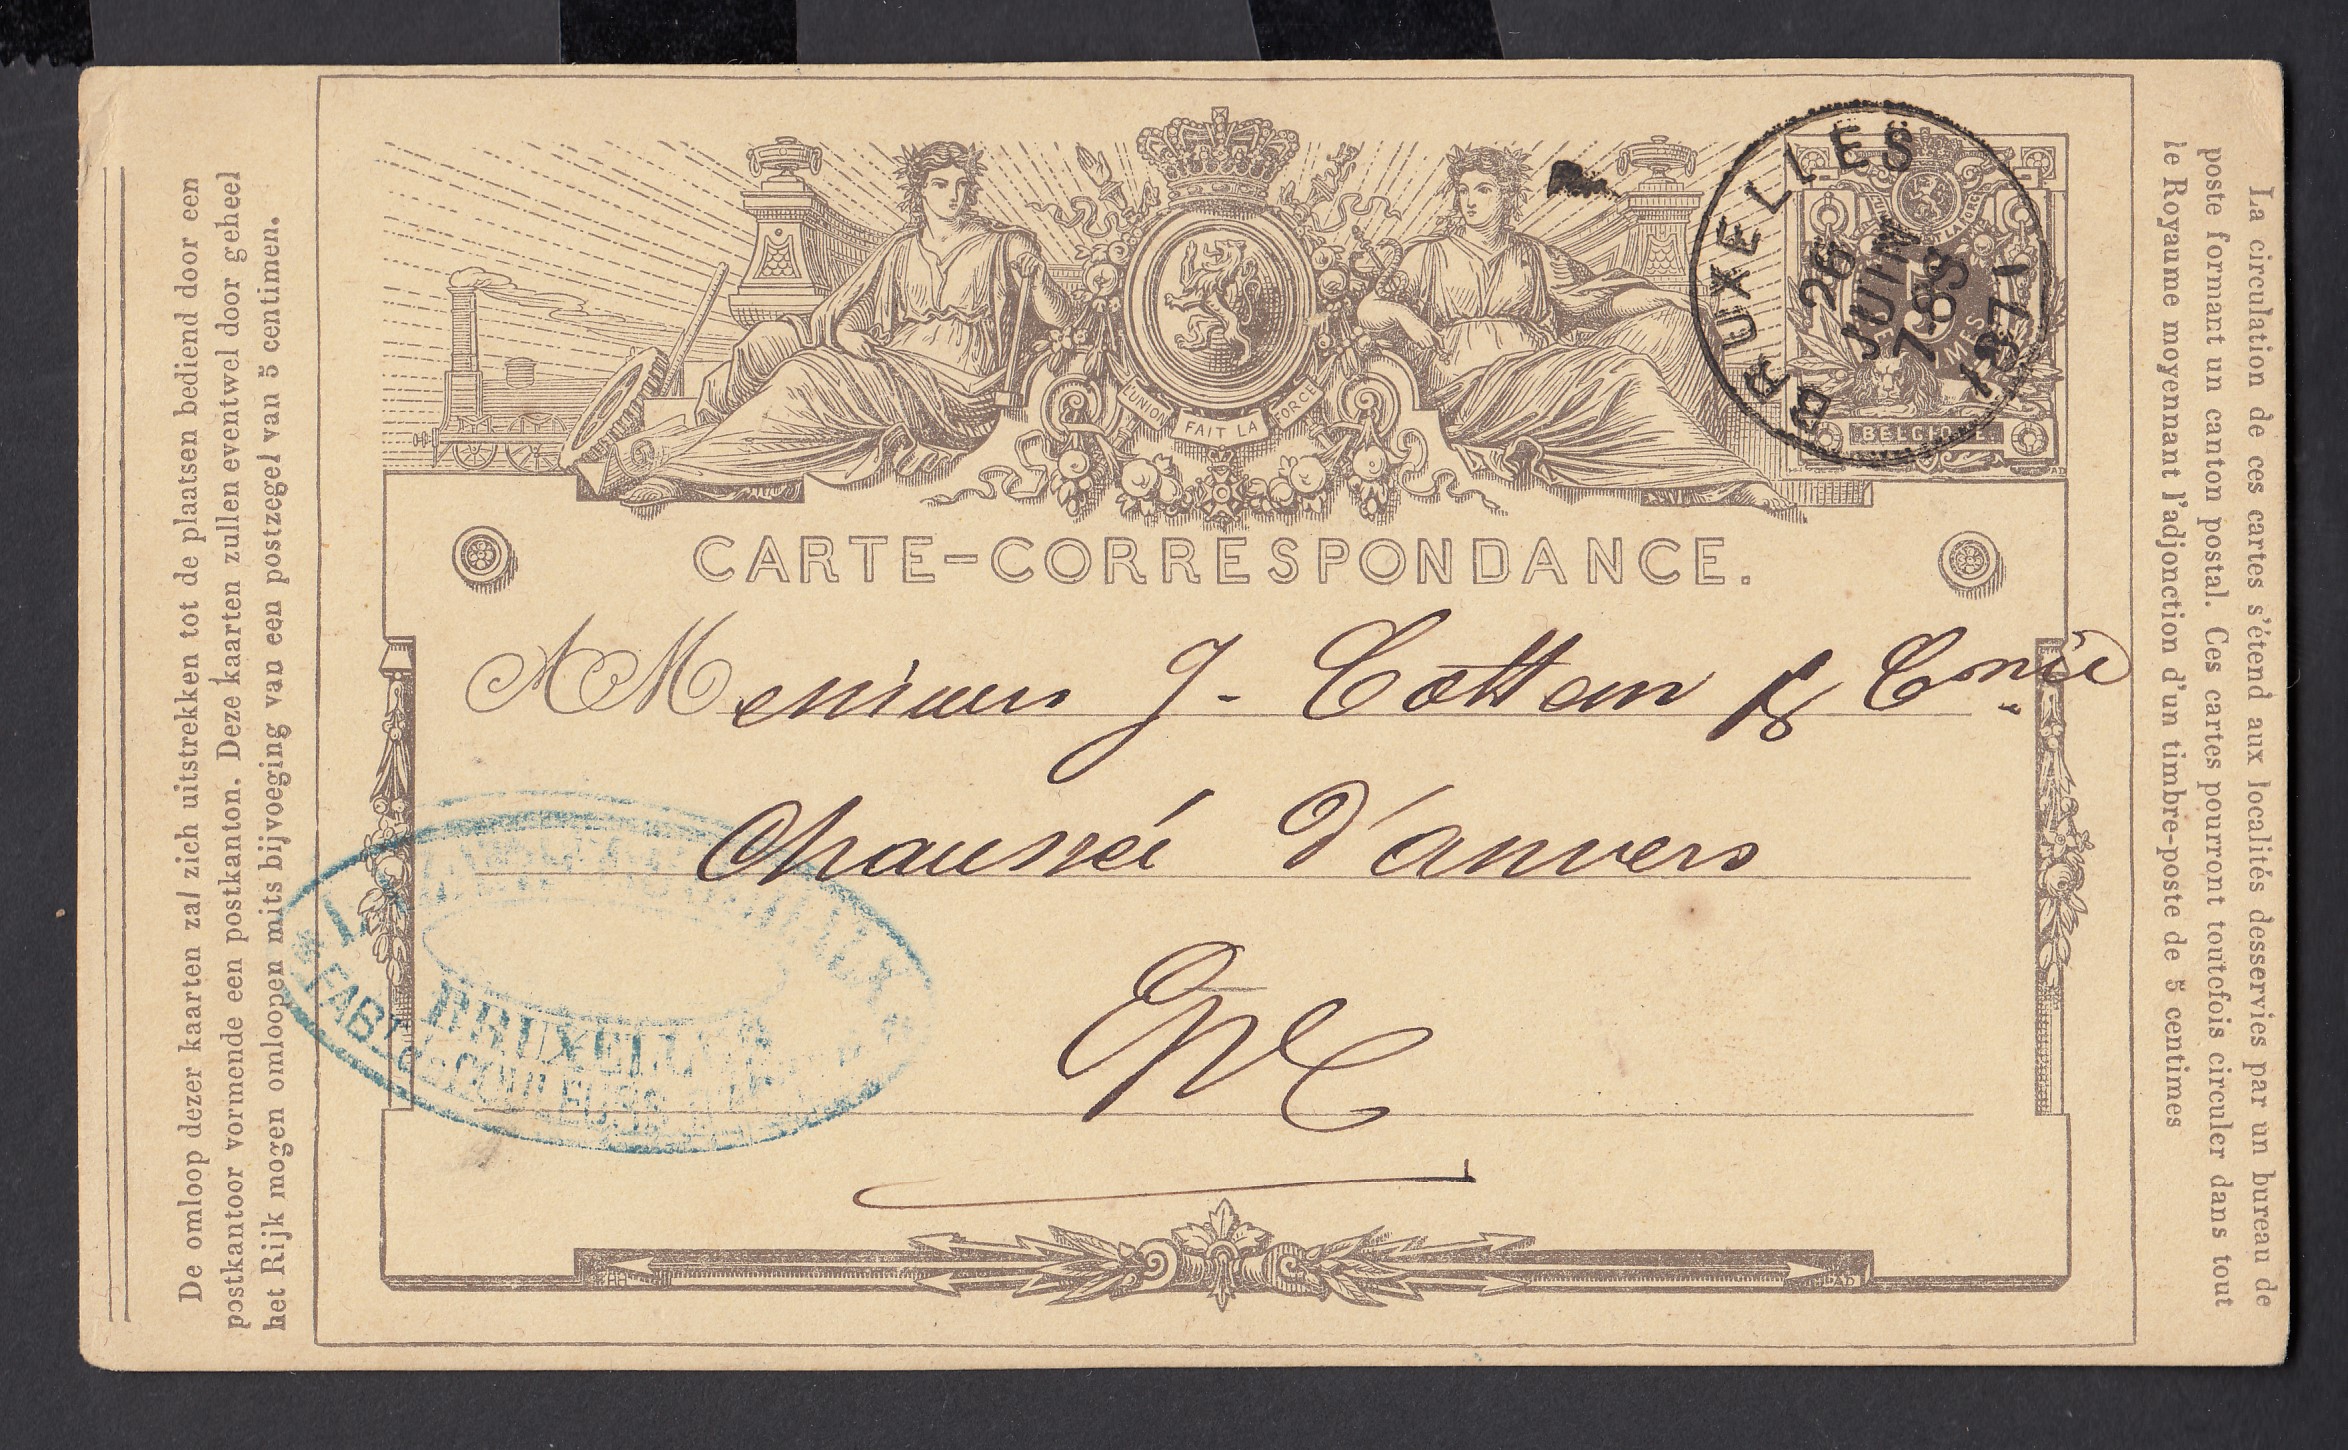 De omloop dezer kaarten zal zich uitstrekken tot de plaatsen bediend door een
postkantoor vormende een postkanton. Deze kaarten zullen eventwel door geheel
het Rijk mogen omloopen mits bijvoeging van een postzegel van 5 centimen.
L'UNION FAIT LA FORCE
BELGIQUE
BRUXELLES
26
JUIN
7-8S
1871
CARTE-CORRESPONDANCE.
A Messieurs J. Cottem & Cnie
Chaussée d'anvers
EV
BRUXELLES
FABT de COULEURS
La circulation de ces cartes s'étend aux localités desservies par un bureau de
poste formant un canton postal. Ces cartes pourront toutefois circuler dans tout
le Royaume moyennant l'adjonction d'un timbre-poste de 5 centimes